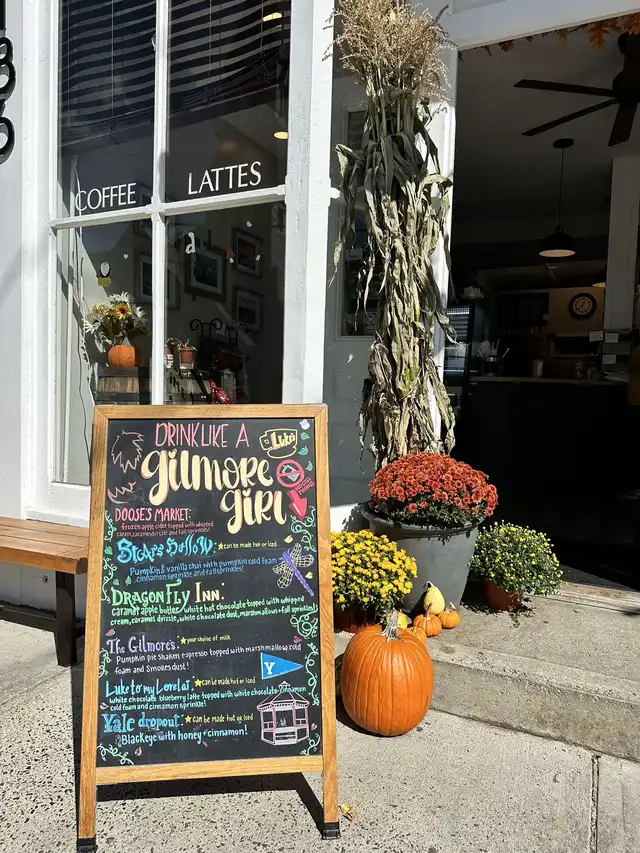 COFFEE
LATTES
a
DRINK LIKE A
Luke's
gilmore
girl
DOOSE'S MARKET:
frozen apple cider topped with whipped
cream, caramel drizzle and fall sprinkles!
Stars Hollow: ★can be made hot or iced
Pumpkin & vanilla chai with pumpkin cold foam
cinnamon sprinkle and fall sprinkles!
DRAGONFLY INN:
caramel apple butter white hot chocolate topped with whipped
cream, caramel drizzle, white chocolate dust, marshmallows + fall sprinkles!
The Gilmore's: ★your choice of milk
Pumpkin pie shaken espresso topped with marshmallow cold
foam and smores dust!
Y
Luke to my Lorelai: ★can be made hot or iced
white chocolate blueberry latte topped with white chocolate cinnamon
cold foam and cinnamon sprinkle!
Yale dropout: ★can be made hot or iced
Blackeye with honey + cinnamon!